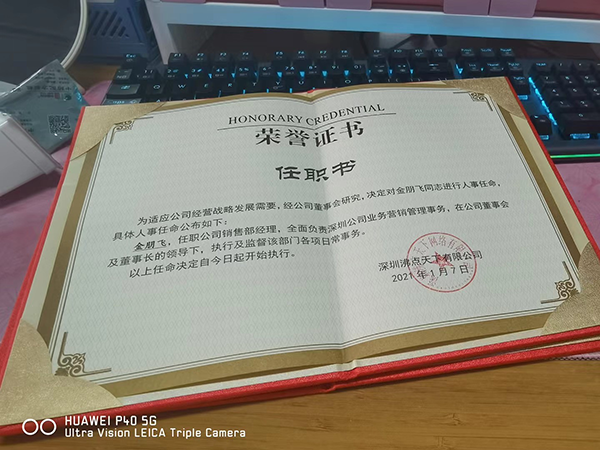 HONORARY CREDENTIAL
荣誉证书
任职书
为适应公司经营战略发展需要，经公司董事会研究，决定对金朋飞同志进行人事任命，
具体人事任命公布如下：
金朋飞，任职公司销售部经理，全面负责深圳公司业务营销管理事务，在公司董事会
及董事长的领导下，执行及监督该部门各项日常事务。
以上任命决定自今日起开始执行。
深圳沸点天下有限公司
2021年1月7日
HUAWEI P40 5G
Ultra Vision LEICA Triple Camera